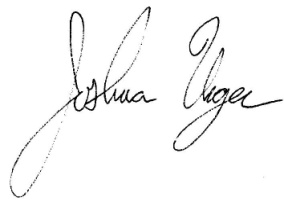 Joshua Unger